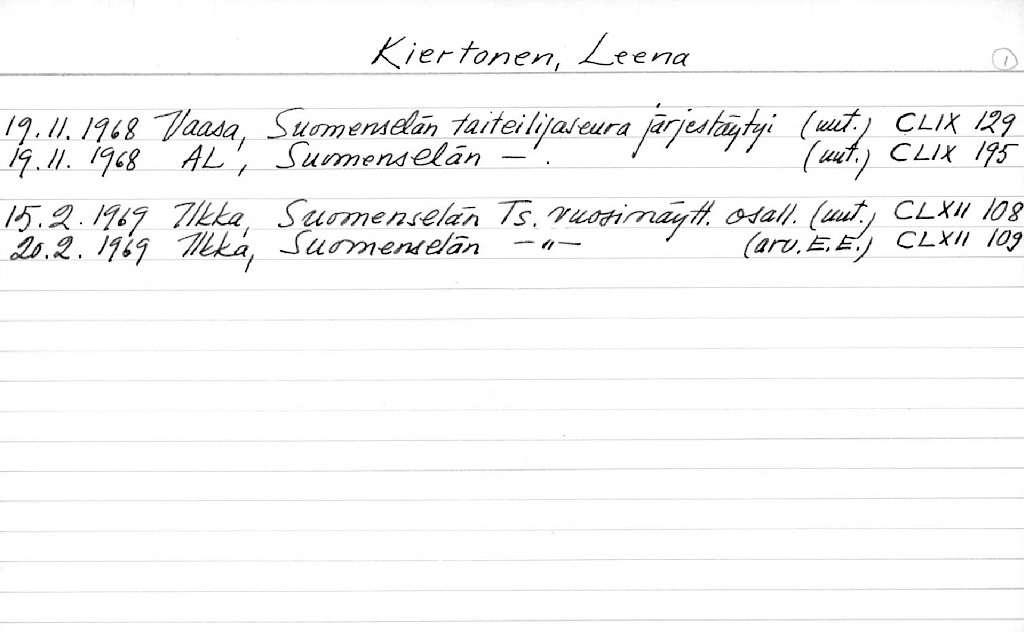 Kiertonen, Leena 1
19.11.1968 Vaasa, Suomenselän taiteilijaseura järjestäytyi (uut.) CLIX 129
19.11.1968 AL, Suomenselän — . (uut.) CLIX 195
15.2.1969 Ilkka, Suomenselän Ts. vuosinäytt. osall. (uut.) CLXII 108
20.2.1969 Ilkka, Suomenselän —"— (arv. E.E.) CLXII 109